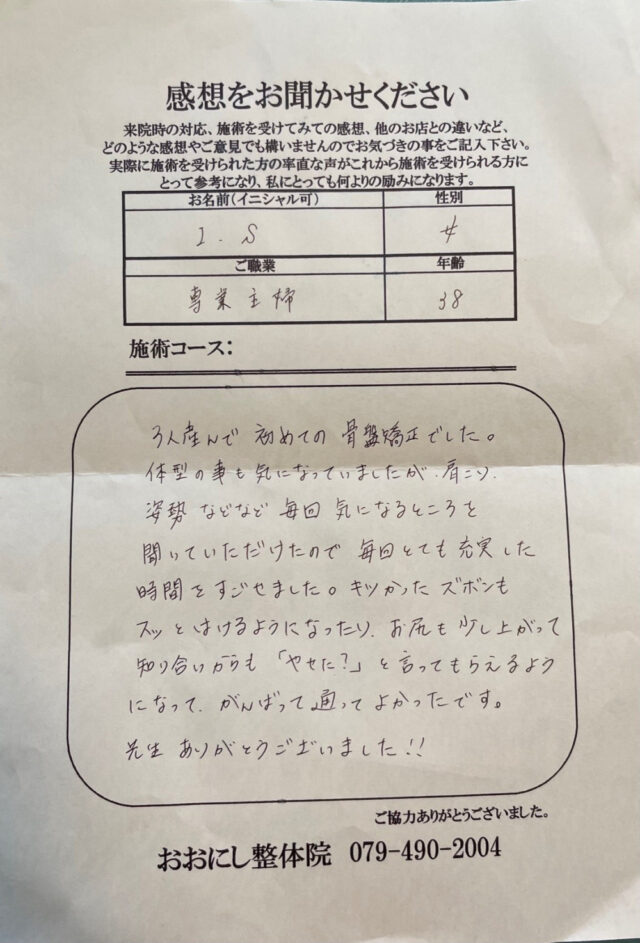 感想をお聞かせください
来院時の対応、施術を受けてみての感想、他のお店との違いなど、
どのような感想やご意見でも構いませんのでお気づきの事をご記入下さい。
実際に施術を受けられた方の率直な声がこれから施術を受けられる方に
とって参考になり、私にとっても何よりの励みになります。
お名前(イニシャル可) 性別
I.S 女
ご職業 年齢
専業主婦 38
施術コース:
3人産んで 初めての 骨盤矯正でした。
体型の事も気になっていましたが、肩こり、
姿勢 などなど 毎回 気になるところを
聞いていただけたので 毎回とても 充実した
時間を すごせました。キツかった ズボンも
スッと はけるようになったり、お尻も 少し上がって
知り合いからも 「やせた?」と 言ってもらえるよう
になって、がんばって 通って よかったです。
先生 ありがとうございました!!
ご協力ありがとうございました。
おおにし整体院 079-490-2004